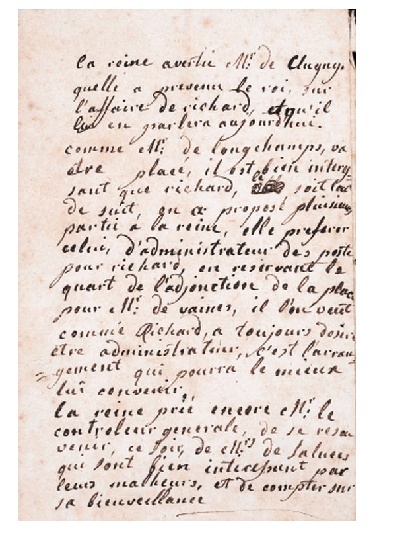 la reine avertie Mr. de Clugny.
quelle a prevenu le roi, sur
l'affaire de richard, et qu'il
lui en parlera aujourdhui.
comme Mr. de longchamps, va
être placé, il est bien interes-
sant que richard, le soit tout
de suit, on a proposé plusieurs
partie à la reine, elle preferer
celui, d'administrateur des poste
pour richard, en reservant le
quart de l'adjonction de la place
pour Mr. de vaines, si l'on veut
comme Richard, a toujours desiré
être administrateur, c'est l'arran-
gement qui pourra le mieux
lui convenir.
la reine prie encore Mr. le
controleur generale, de se resou-
venir, ce soir, de Mrs de Saluces
qui sont bien interessent par
leurs malheurs, et de compter sur
sa bienveillance